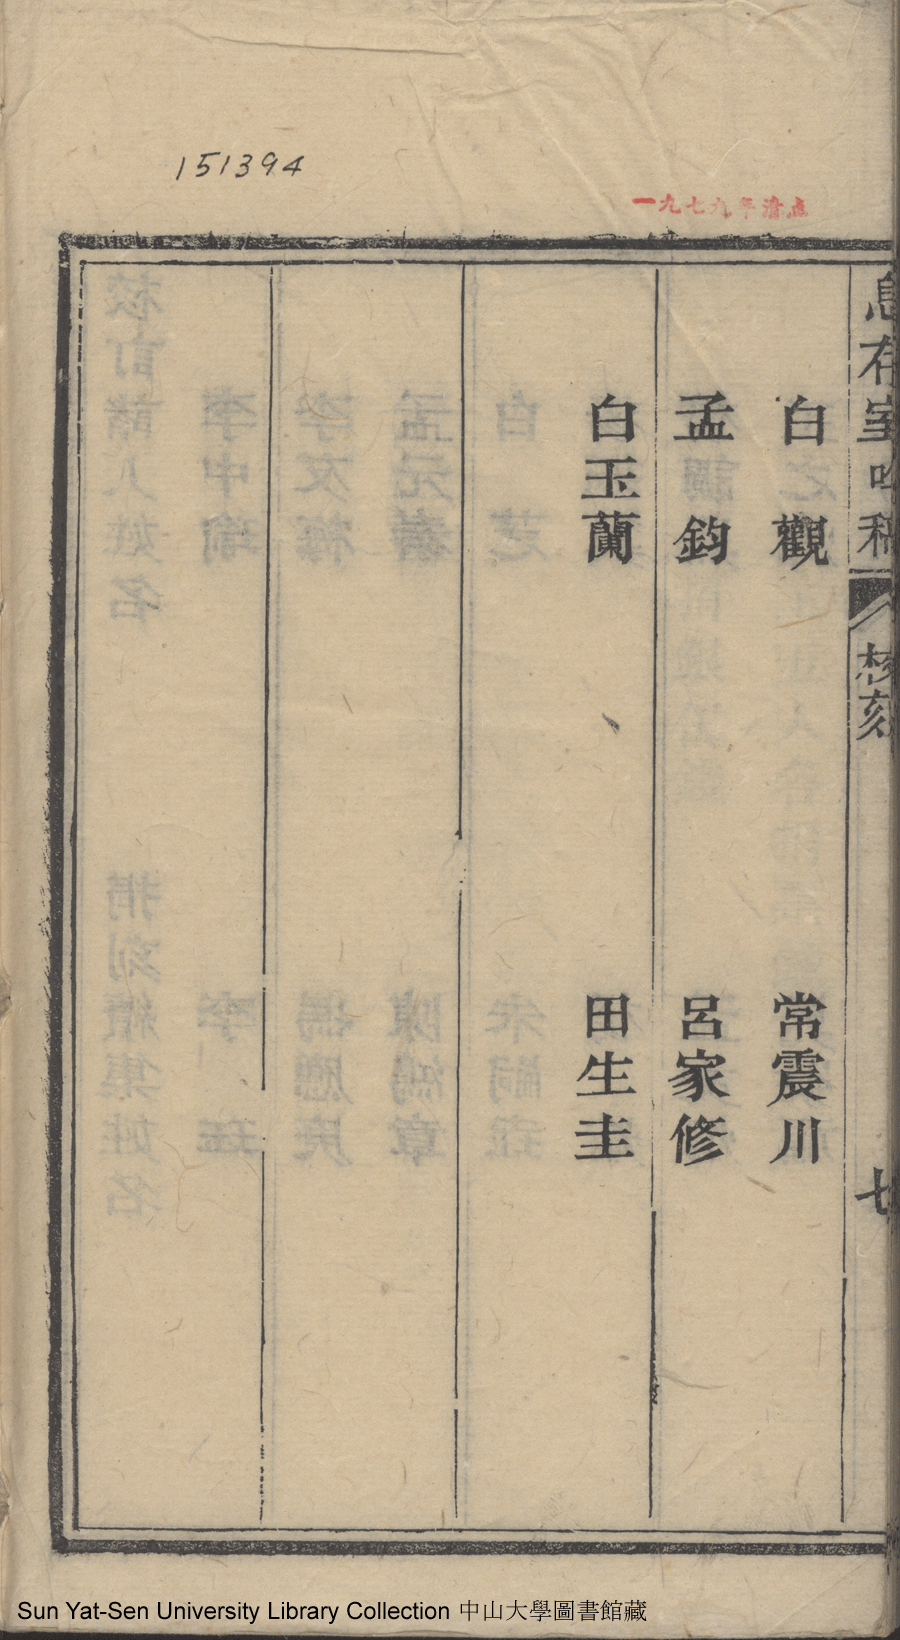 151394
一九七九年清点
息存室吟稿
核刻
七
白觀
常震川
孟鈞
呂家修
白玉蘭
田生圭
Sun Yat-Sen University Library Collection 中山大學圖書館藏